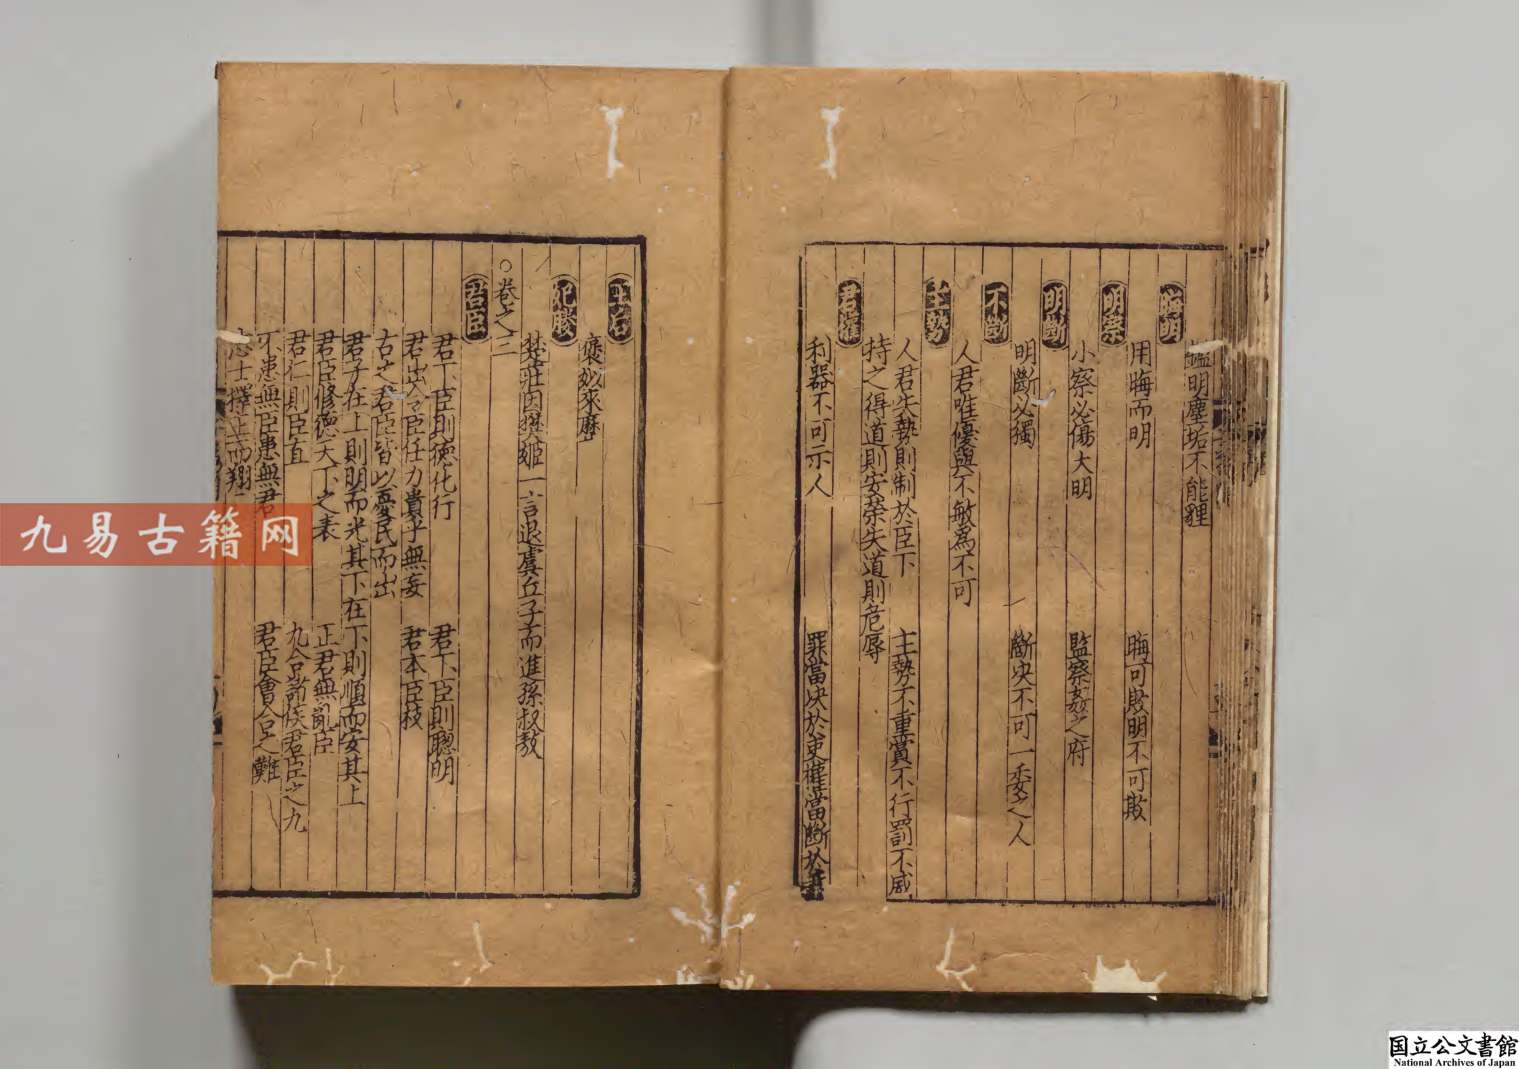 鑑明塵垢不能貍
晦明
用晦而明　晦可啟明不可欺
明察
小察必傷大明　監察姦之府
明斷
明斷必獨　斷決不可一委之人
不斷
人君唯優與不敏為不可
主勢
人君失勢則制於臣下　主勢不重賞不行罰不威
持之得道則安榮失道則危辱
君權
利器不可示人　罪當決於吏權當斷於
王后
褒姒來歷
妃媵
楚莊因樊姬一言退虞丘子而進孫叔敖
○卷之三
君臣
君下臣則德化行　君下臣則聰明
君出令臣任力貴乎無妄　君本臣枝
古之君臣皆以憂民而出
君子在上則明而光其下在下則順而安其上
君臣修德天下之表　正君無亂臣
君仁則臣直　九合諸侯君臣之九
不患無臣患無君　君臣會合之難
志士擇主而翔
九易古籍网
国立公文書館
National Archives of Japan